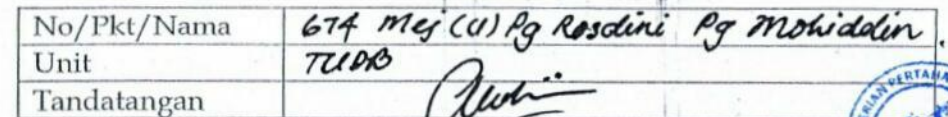 No/Pkt/Nama 674 Mej (U) Pg Rosdini Pg Mohiddin.
Unit TUDB
Tandatangan